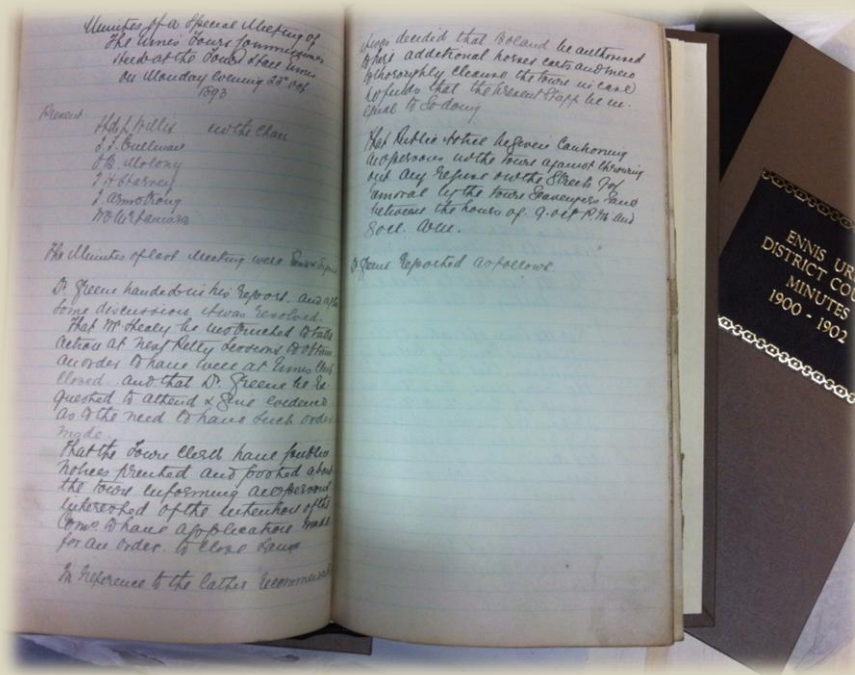 Minutes of a Special Meeting of
The Ennis Town Commissioners
Held at the Town Hall Ennis
on Monday Evening 23 Oct
1893
Present
Willis in the Chair
J. J. Cullinan
P B Molony
J H Harvey
J. Armstrong
McNamara
The Minutes of last Meeting were
Dr Greene handed in his Report. and after
some discussion it was resolved.
That Mr Healy be instructed to take
action at next Petty Sessions to obtain
an order to have well at
closed. and that Dr. Greene be re
quested to attend & give evidence
as to the need to have such order
made.
That the Town Clerk have public
notices printed and posted about
the town informing all persons
interested of the intention of the
Comrs to have application made
for an order. to close same
In reference to the latter recommendation
it was decided that Boland be authorised
to hire additional horses carts and men
to thoroughly cleanse the town in case
he finds that the present staff be un
equal to so doing
That Public Notice be given Cautioning
all persons in the town against throwing
out any refuse on the Streets for
removal by the town Scavengers save
between the hours of 9. o'ct P.M and
8 oct. A.M.
Dr Greene Reported as follows
ENNIS UR
DISTRICT COU
MINUTES
1900 - 1902